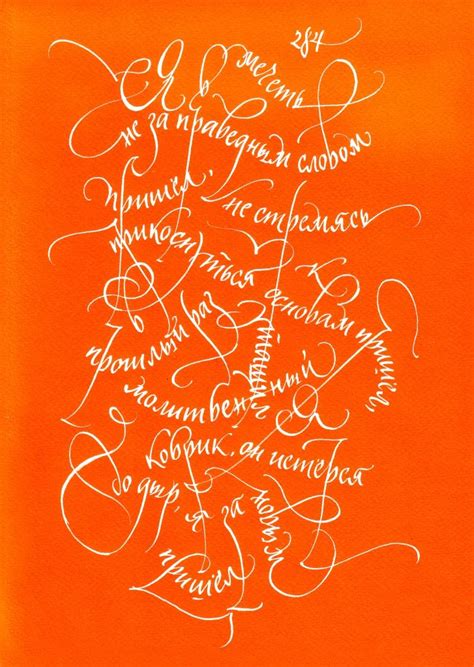 284
Я в мечеть
не за праведным словом
пришёл,
не стремясь
прикоснуться
к основам пришёл,
в прошлый раз
утащил я
молитвенный
коврик, он истёрся
до дыр, я за
новым
пришёл